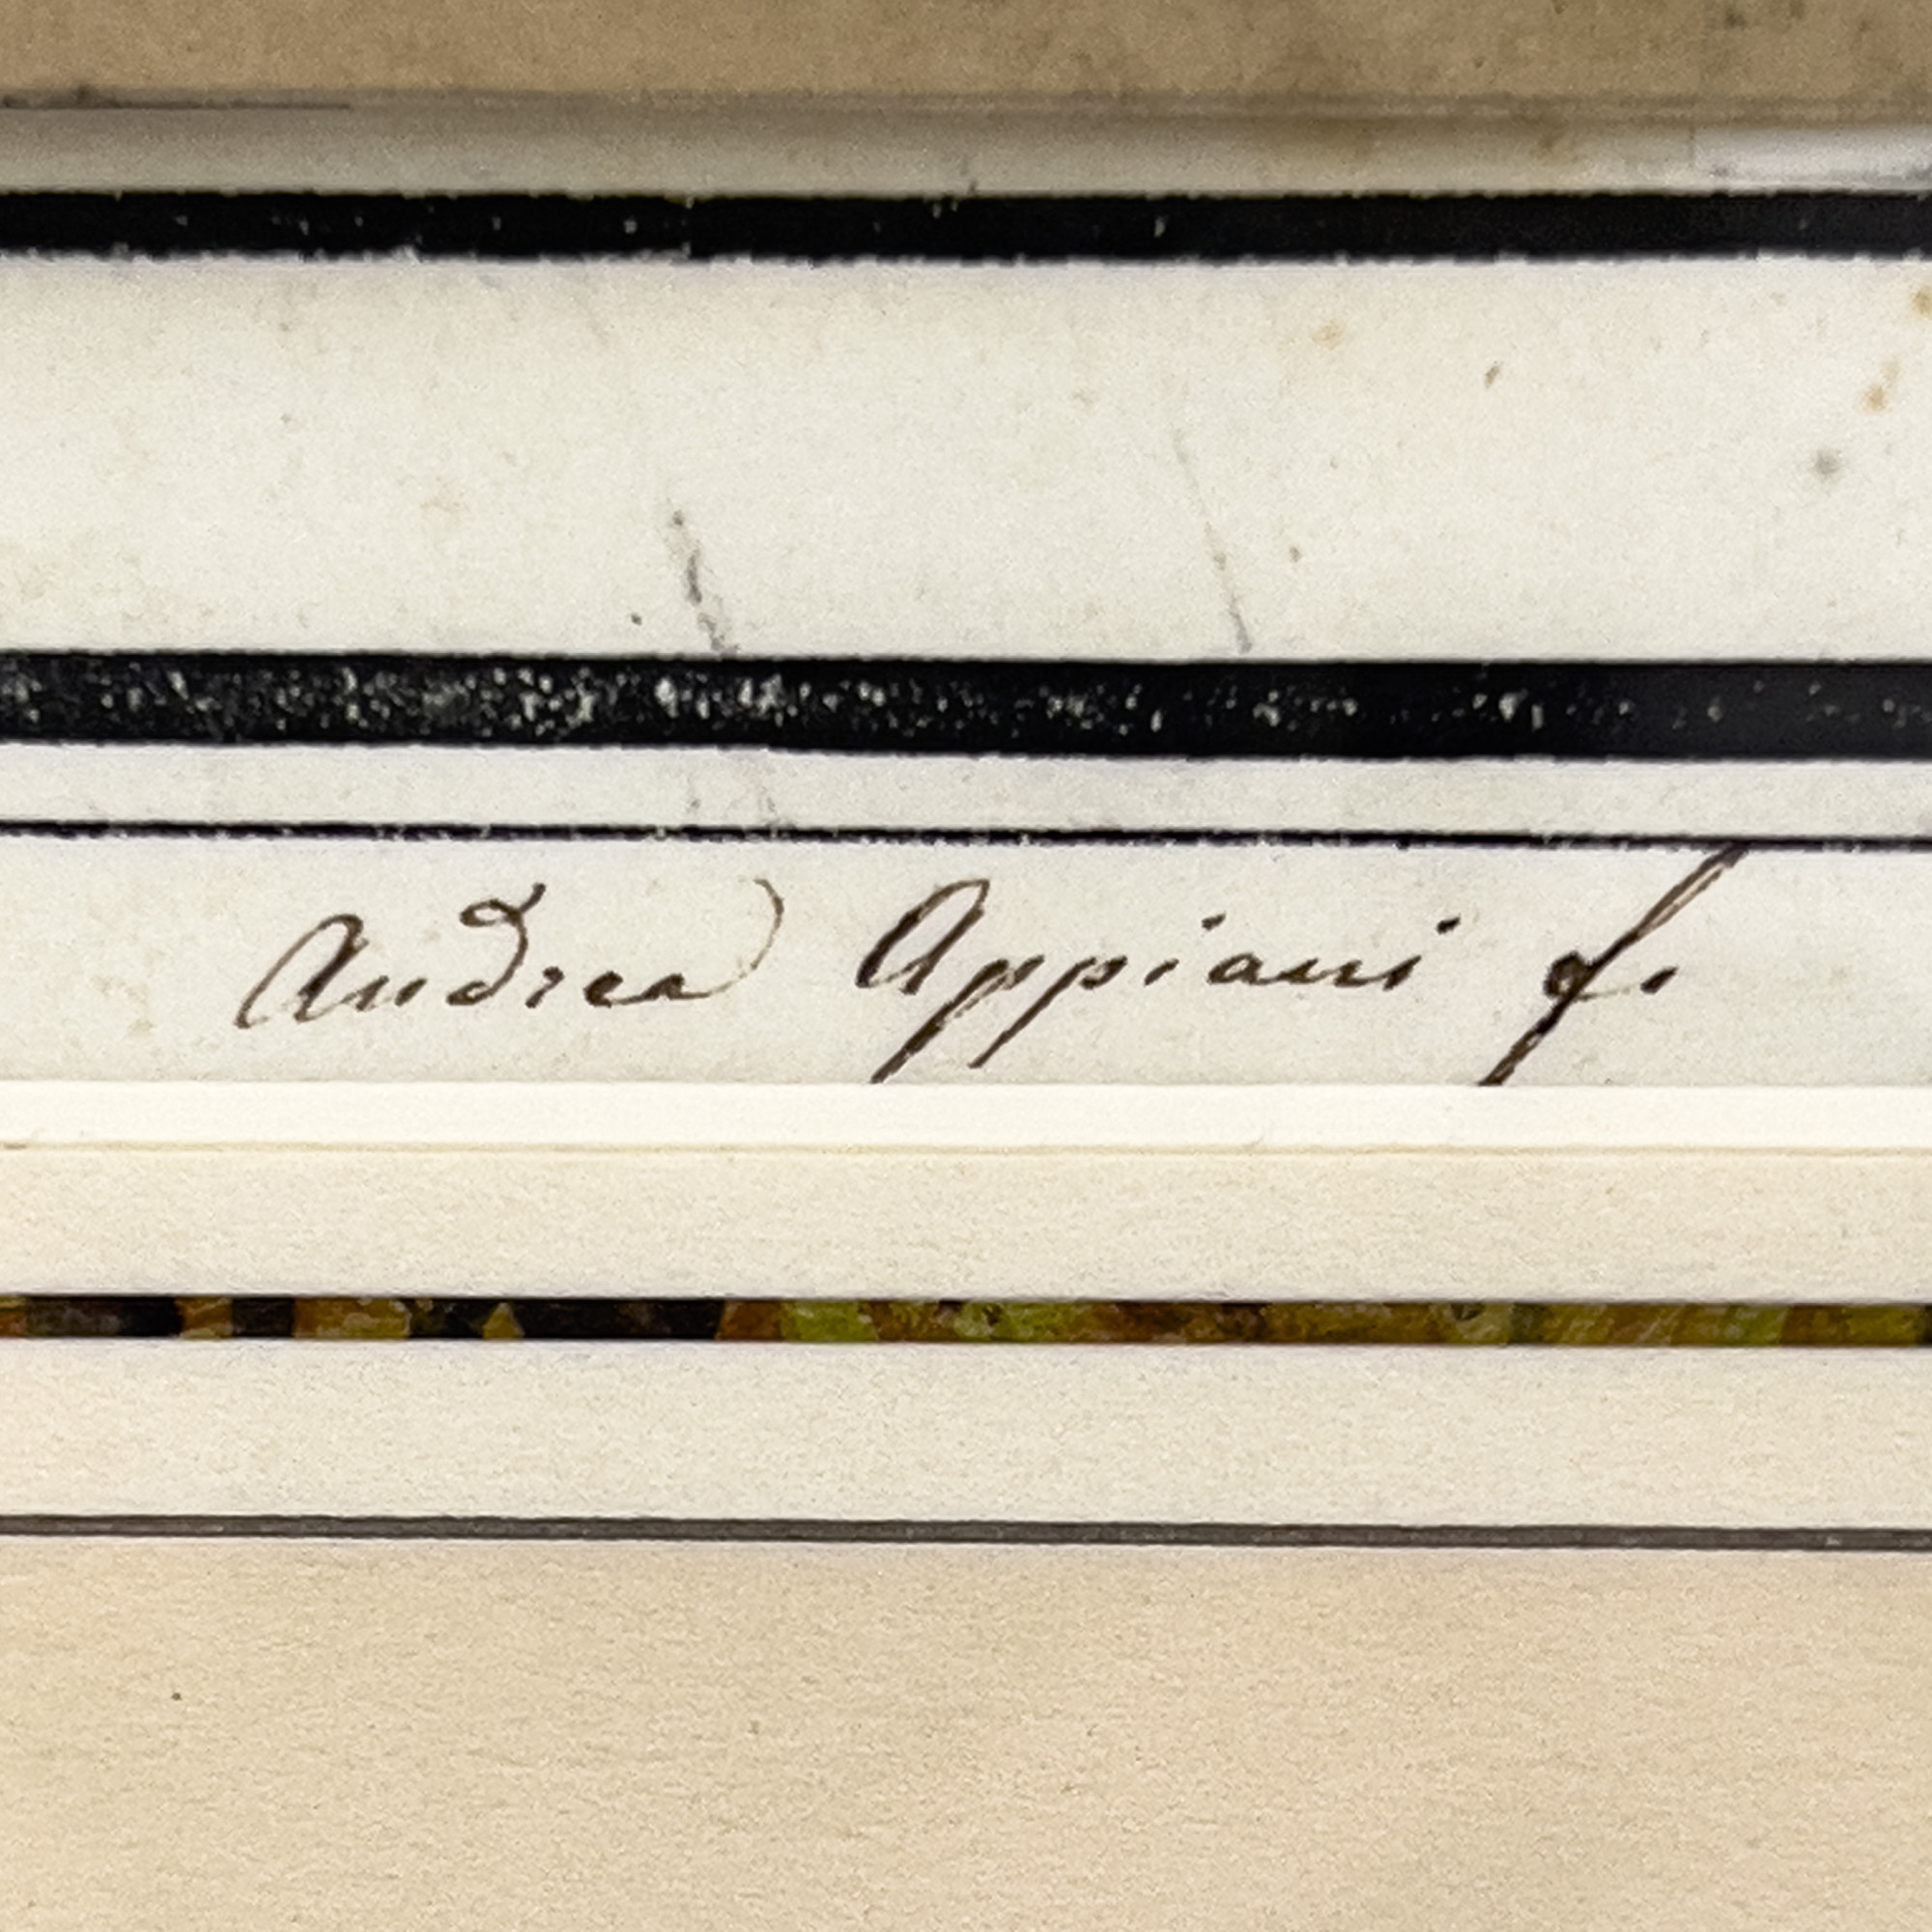 Andrea Appiani f.